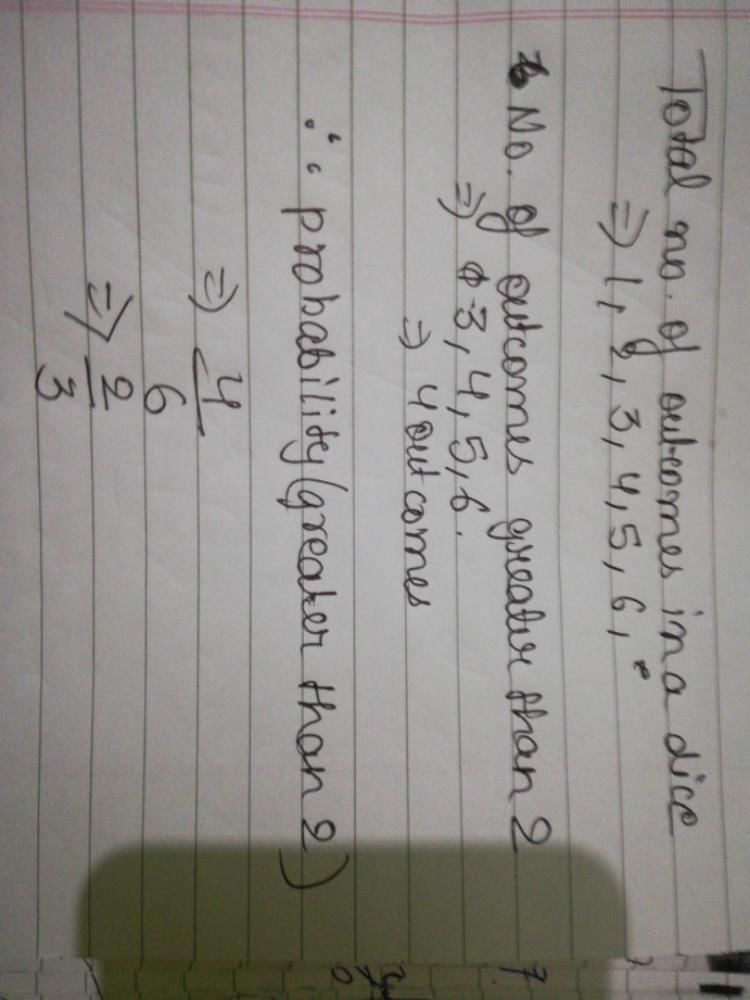 Total no. of outcomes in a dice
⇒ 1, 2, 3, 4, 5, 6,
No. of outcomes greater than 2
⇒ 3, 4, 5, 6.
⇒ 4 outcomes
∴ probability (greater than 2)
⇒ 4
6
⇒ 2
3
7.